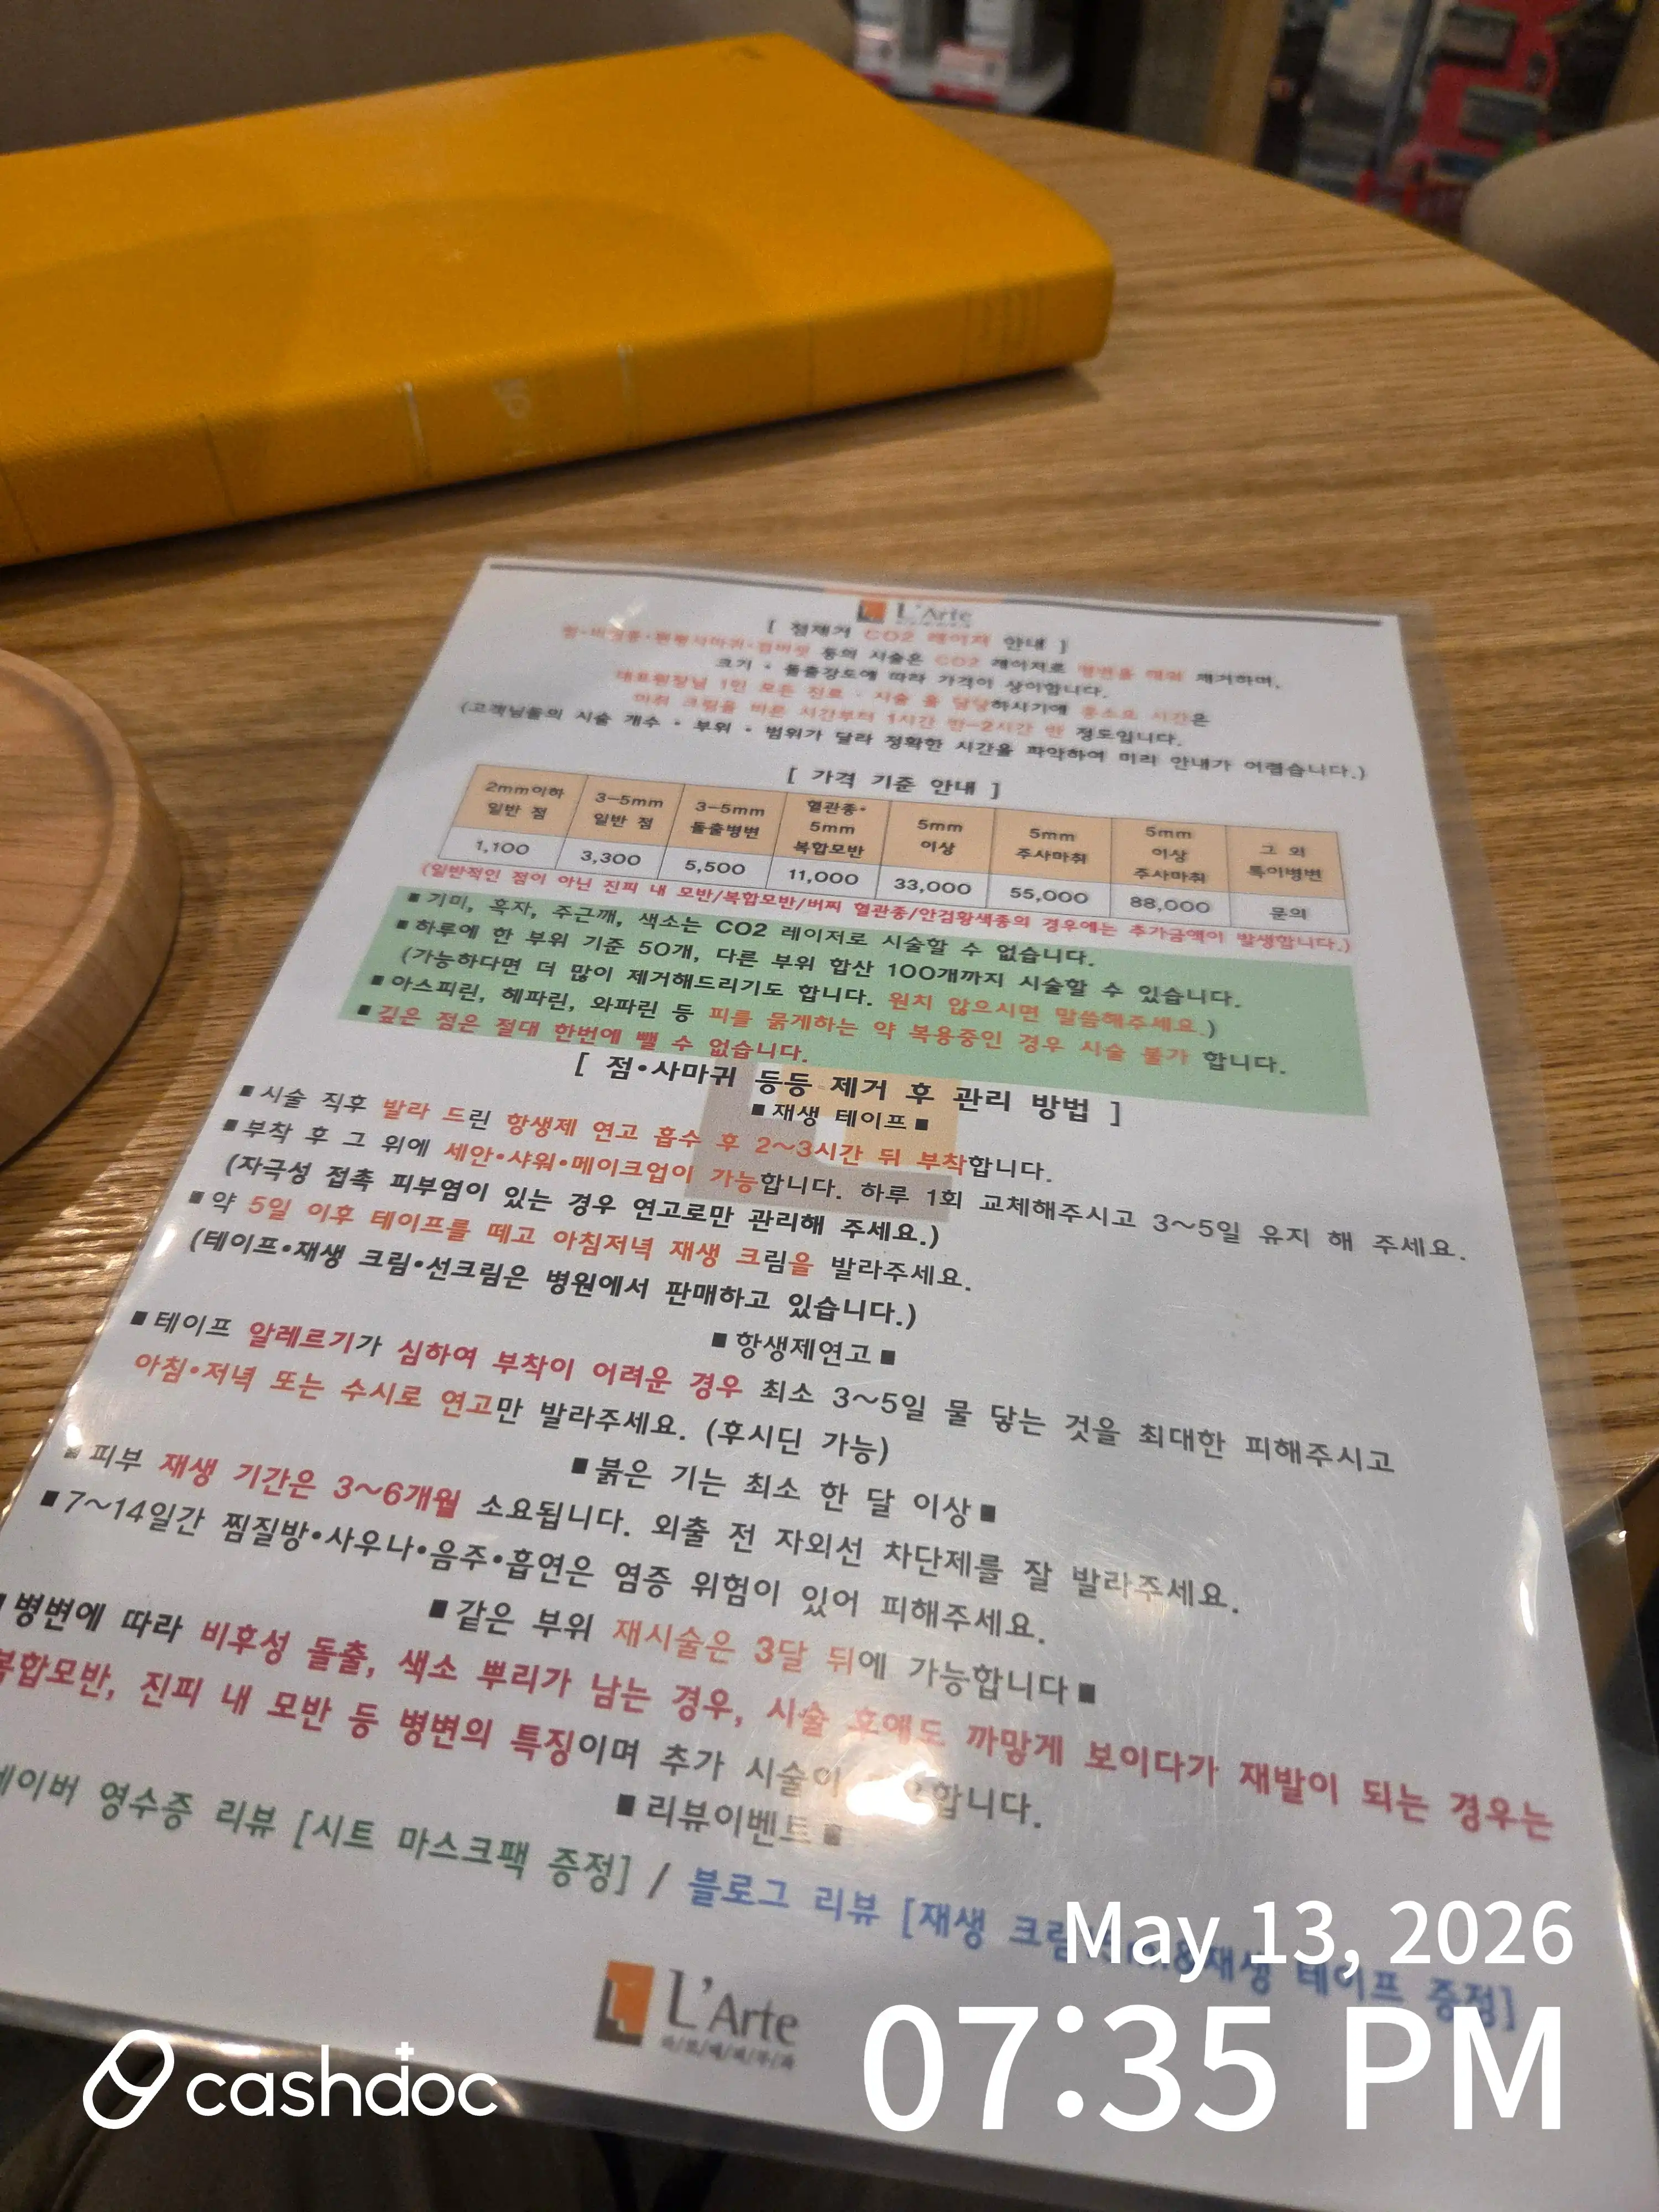 L'Arte
[ 점제거 CO2 레이저 안내 ]
점•비립종•편평사마귀•검버섯 등의 시술은 CO2 레이저로 병변을 태워 제거하며,
크기 • 돌출강도에 따라 가격이 상이합니다.
대표원장님 1인 모든 진료 • 시술 을 담당하시기에 총소요 시간은
마취 크림을 바른 시간부터 1시간 반-2시간 반 정도입니다.
(고객님들의 시술 개수 • 부위 • 범위가 달라 정확한 시간을 파악하여 미리 안내가 어렵습니다.)
[ 가격 기준 안내 ]
2mm이하 일반 점 3-5mm 일반 점 3-5mm 돌출병변 혈관종• 5mm 복합모반 5mm 이상 5mm 주사마취 5mm 이상 주사마취 그 외 특이병변
1,100 3,300 5,500 11,000 33,000 55,000 88,000 문의
(일반적인 점이 아닌 진피 내 모반/복합모반/버찌 혈관종/안검황색종의 경우에는 추가금액이 발생합니다.)
■기미, 흑자, 주근깨, 색소는 CO2 레이저로 시술할 수 없습니다.
■하루에 한 부위 기준 50개, 다른 부위 합산 100개까지 시술할 수 있습니다.
(가능하다면 더 많이 제거해드리기도 합니다. 원치 않으시면 말씀해주세요.)
■아스피린, 헤파린, 와파린 등 피를 묽게하는 약 복용중인 경우 시술 불가 합니다.
■깊은 점은 절대 한번에 뺄 수 없습니다.
[ 점•사마귀 등등 제거 후 관리 방법 ]
■재생 테이프■
■시술 직후 발라 드린 항생제 연고 흡수 후 2~3시간 뒤 부착합니다.
■부착 후 그 위에 세안•샤워•메이크업이 가능합니다. 하루 1회 교체해주시고 3~5일 유지 해 주세요.
(자극성 접촉 피부염이 있는 경우 연고로만 관리해 주세요.)
■약 5일 이후 테이프를 떼고 아침저녁 재생 크림을 발라주세요.
(테이프•재생 크림•선크림은 병원에서 판매하고 있습니다.)
■항생제연고■
■테이프 알레르기가 심하여 부착이 어려운 경우 최소 3~5일 물 닿는 것을 최대한 피해주시고
아침•저녁 또는 수시로 연고만 발라주세요. (후시딘 가능)
■붉은 기는 최소 한 달 이상■
■피부 재생 기간은 3~6개월 소요됩니다. 외출 전 자외선 차단제를 잘 발라주세요.
■7~14일간 찜질방•사우나•음주•흡연은 염증 위험이 있어 피해주세요.
■같은 부위 재시술은 3달 뒤에 가능합니다■
■병변에 따라 비후성 돌출, 색소 뿌리가 남는 경우, 시술 후에도 까맣게 보이다가 재발이 되는 경우는
복합모반, 진피 내 모반 등 병변의 특징이며 추가 시술이 합니다.
■리뷰이벤트■
네이버 영수증 리뷰 [시트 마스크팩 증정] / 블로그 리뷰 [재생 크림 &재생 테이프 증정]
L'Arte
May 13, 2026
07:35 PM
cashdoc